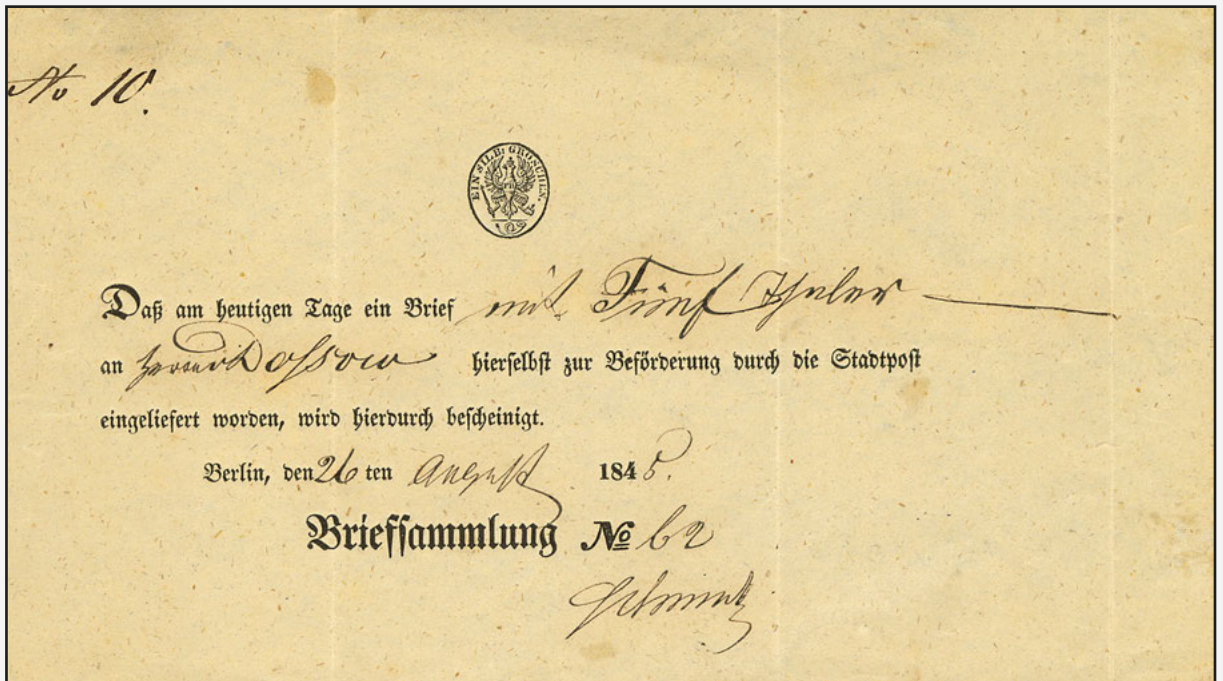 No 10.
EIN SILB: GROSCHEN.
Daß am heutigen Tage ein Brief mit Fünf Thaler
an Herrn Dossow hierselbst zur Beförderung durch die Stadtpost
eingeliefert worden, wird hierdurch bescheinigt.
Berlin, den 26 ten August 1845.
Briefsammlung No 62